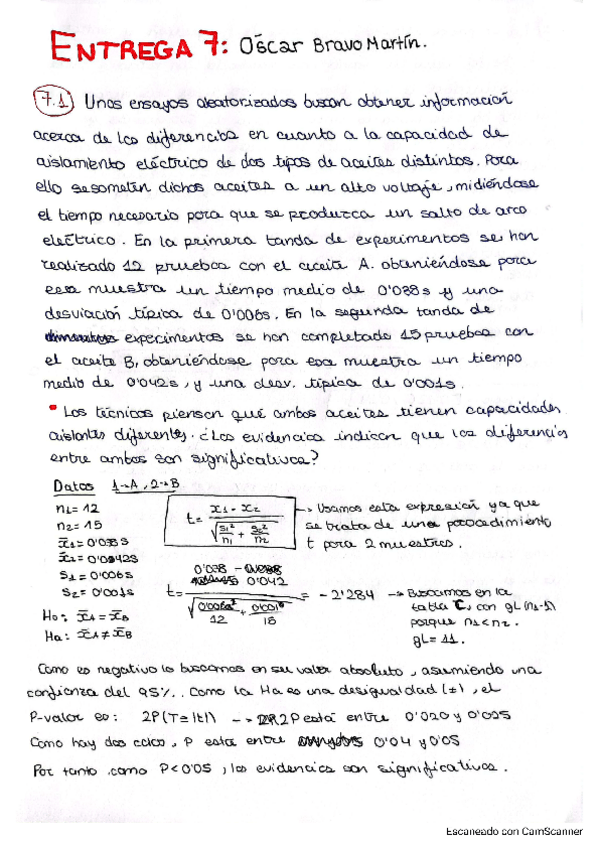 ENTREGA 7: Óscar Bravo Martín.
7.1 Unos ensayos aleatorizados buscan obtener información
acerca de las diferencias en cuanto a la capacidad de
aislamiento eléctrico de dos tipos de aceites distintos. Para
ello se someten dichos aceites a un alto voltaje, midiéndose
el tiempo necesario para que se produzca un salto de arco
eléctrico. En la primera tanda de experimentos se han
realizado 12 pruebas con el aceite A. obteniéndose para
esa muestra un tiempo medio de 0'038s y una
desviación típica de 0'006s. En la segunda tanda de
experimentos se han completado 15 pruebas con
el aceite B, obteniéndose para esa muestra un tiempo
medio de 0'042s, y una desv. típica de 0'001s.
• Los técnicos piensan qué ambos aceites tienen capacidades
aislantes diferentes. ¿Las evidencias indican que las diferencias
entre ambos son significativas?
Datos 1→A, 2→B
n1=12
n2=15
x̄1=0'038s
x̄2=0'0042s
s1=0'006s
s2=0'001s
H0: x̄A=x̄B
Ha: x̄A≠x̄B
t= x1-x2 / √(s1²/n1 + s2²/n2)
→ Usamos esta expresión ya que
se trata de un procedimiento
t para 2 muestras.
t= 0'038 - 0'042 / √(0'006²/12 + 0'001²/15) = -2'284
→ Buscamos en la
tabla C, con gL (n1-1)
porque n1<n2.
gL=11.
Como es negativo lo buscamos en su valor absoluto, asumiendo una
confianza del 95%. Como la Ha es una desigualdad (≠), el
P-valor es: 2P(T≥|t|) → 2P está entre 0'020 y 0'025
Como hay dos colas, P está entre 0'04 y 0'05
Por tanto, como P<0'05, las evidencias son significativas.
Escaneado con CamScanner